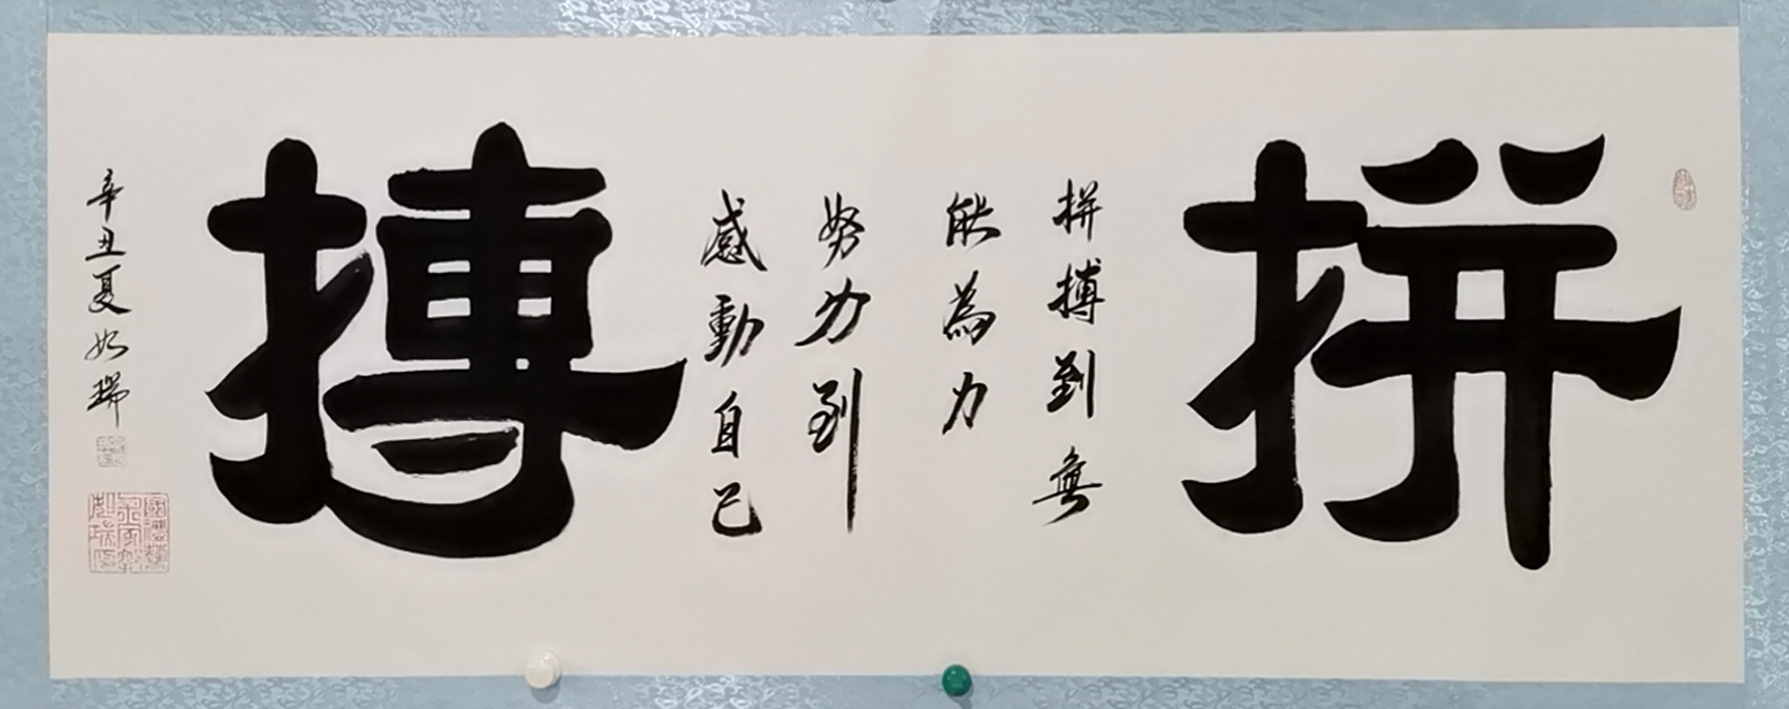 拼
拼搏到無
能為力
努力到
感動自己
搏
辛丑夏如瑞